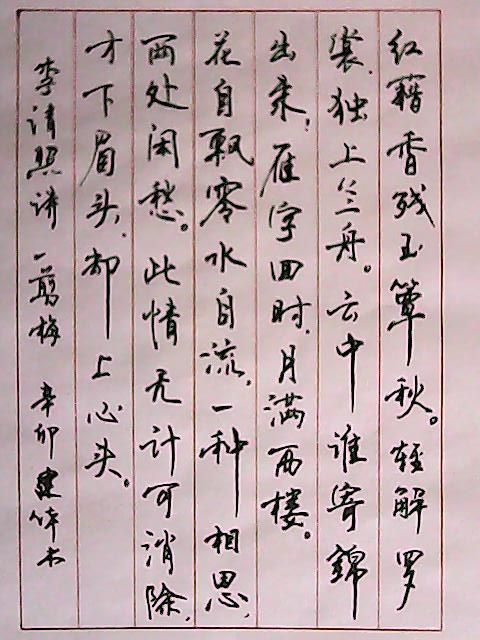 红藕香残玉簟秋。轻解罗
裳,独上兰舟。云中谁寄锦
书来,雁字回时,月满西楼。
花自飘零水自流,一种相思,
两处闲愁。此情无计可消除,
才下眉头,却上心头。
李清照诗 一剪梅 辛卯 建 书